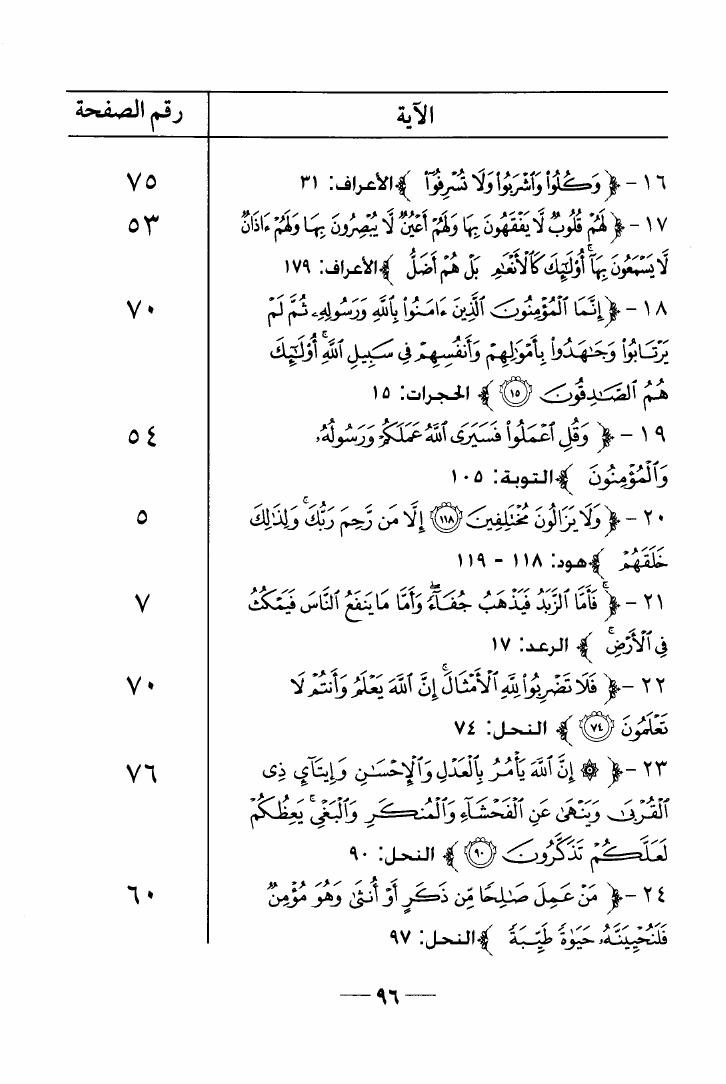 الآية رقم الصفحة
١٦ - ﴿ وَكُلُوا۟ وَٱشْرَبُوا۟ وَلَا تُسْرِفُوٓا۟ ﴾ الأعراف: ٣١ ٧٥
١٧ - ﴿ لَهُمْ قُلُوبٌ لَّا يَفْقَهُونَ بِهَا وَلَهُمْ أَعْيُنٌ لَّا يُبْصِرُونَ بِهَا وَلَهُمْ ءَاذَانٌ ٥٣
لَّا يَسْمَعُونَ بِهَآ ۚ أُو۟لَٰٓئِكَ كَٱلْأَنْعَٰمِ بَلْ هُمْ أَضَلُّ ﴾ الأعراف: ١٧٩
١٨ - ﴿ إِنَّمَا ٱلْمُؤْمِنُونَ ٱلَّذِينَ ءَامَنُوا۟ بِٱللَّهِ وَرَسُولِهِۦ ثُمَّ لَمْ ٧٠
يَرْتَابُوا۟ وَجَٰهَدُوا۟ بِأَمْوَٰلِهِمْ وَأَنفُسِهِمْ فِى سَبِيلِ ٱللَّهِ ۚ أُو۟لَٰٓئِكَ
هُمُ ٱلصَّٰدِقُونَ ⁧(١٥)⁩ ﴾ الحجرات: ١٥
١٩ - ﴿ وَقُلِ ٱعْمَلُوا۟ فَسَيَرَى ٱللَّهُ عَمَلَكُمْ وَرَسُولُهُۥ ٥٤
وَٱلْمُؤْمِنُونَ ﴾ التوبة: ١٠٥
٢٠ - ﴿ وَلَا يَزَالُونَ مُخْتَلِفِينَ (١١٨) إِلَّا مَن رَّحِمَ رَبُّكَ ۚ وَلِذَٰلِكَ ٥
خَلَقَهُمْ ﴾ هود: ١١٨ - ١١٩
٢١ - ﴿ فَأَمَّا ٱلزَّبَدُ فَيَذْهَبُ جُفَآءً ۖ وَأَمَّا مَا يَنفَعُ ٱلنَّاسَ فَيَمْكُثُ ٧
فِى ٱلْأَرْضِ ۚ ﴾ الرعد: ١٧
٢٢ - ﴿ فَلَا تَضْرِبُوا۟ لِلَّهِ ٱلْأَمْثَالَ ۚ إِنَّ ٱللَّهَ يَعْلَمُ وَأَنتُمْ لَا ٧٠
تَعْلَمُونَ (٧٤) ﴾ النحل: ٧٤
٢٣ - ﴿ ۞ إِنَّ ٱللَّهَ يَأْمُرُ بِٱلْعَدْلِ وَٱلْإِحْسَٰنِ وَإِيتَآئِ ذِى ٧٦
ٱلْقُرْبَىٰ وَيَنْهَىٰ عَنِ ٱلْفَحْشَآءِ وَٱلْمُنكَرِ وَٱلْبَغْىِ ۚ يَعِظُكُمْ
لَعَلَّكُمْ تَذَكَّرُونَ (٩٠) ﴾ النحل: ٩٠
٢٤ - ﴿ مَنْ عَمِلَ صَٰلِحًا مِّن ذَكَرٍ أَوْ أُنثَىٰ وَهُوَ مُؤْمِنٌ ٦٠
فَلَنُحْيِيَنَّهُۥ حَيَوٰةً طَيِّبَةً ﴾ النحل: ٩٧
— ٩٦ —